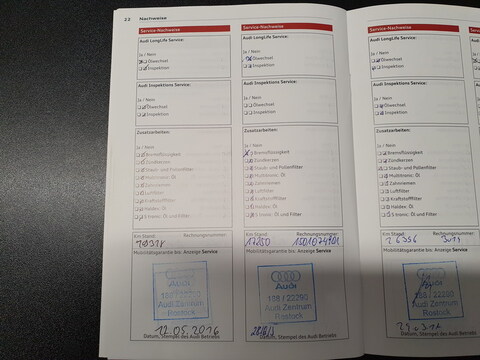 22 Nachweise
Service-Nachweise
Audi LongLife Service:
Ja / Nein
Ölwechsel
Inspektion
Audi Inspektions Service:
Ja / Nein
Ölwechsel
Inspektion
Zusatzarbeiten:
Ja / Nein
Bremsflüssigkeit
Zündkerzen
Staub- und Pollenfilter
Multitronic: Öl
Zahnriemen
Luftfilter
Kraftstofffilter
Haldex: Öl
S tronic: Öl und Filter
Km Stand: Rechnungsnummer:
Mobilitätsgarantie bis: Anzeige Service
Audi
188 / 22200
Audi Zentrum
Rostock
12.05.2016
Datum, Stempel des Audi Betriebs
Service-Nachweise
Audi LongLife Service:
Ja / Nein
Ölwechsel
Inspektion
Audi Inspektions Service:
Ja / Nein
Ölwechsel
Inspektion
Zusatzarbeiten:
Ja / Nein
Bremsflüssigkeit
Zündkerzen
Staub- und Pollenfilter
Multitronic: Öl
Zahnriemen
Luftfilter
Kraftstofffilter
Haldex: Öl
S tronic: Öl und Filter
Km Stand: Rechnungsnummer:
Mobilitätsgarantie bis: Anzeige Service
Audi
188 / 22200
Audi Zentrum
Rostock
Datum, Stempel des Audi Betriebs
Service-Nachweise
Audi LongLife Service:
Ja / Nein
Ölwechsel
Inspektion
Audi Inspektions Service:
Ja / Nein
Ölwechsel
Inspektion
Zusatzarbeiten:
Ja / Nein
Bremsflüssigkeit
Zündkerzen
Staub- und Pollenfilter
Multitronic: Öl
Zahnriemen
Luftfilter
Kraftstofffilter
Haldex: Öl
S tronic: Öl und Filter
Km Stand: Rechnungsnummer:
26396
Mobilitätsgarantie bis: Anzeige Service
188 / 22200
Audi Zentrum
Rostock
Datum, Stempel des Audi Betriebs